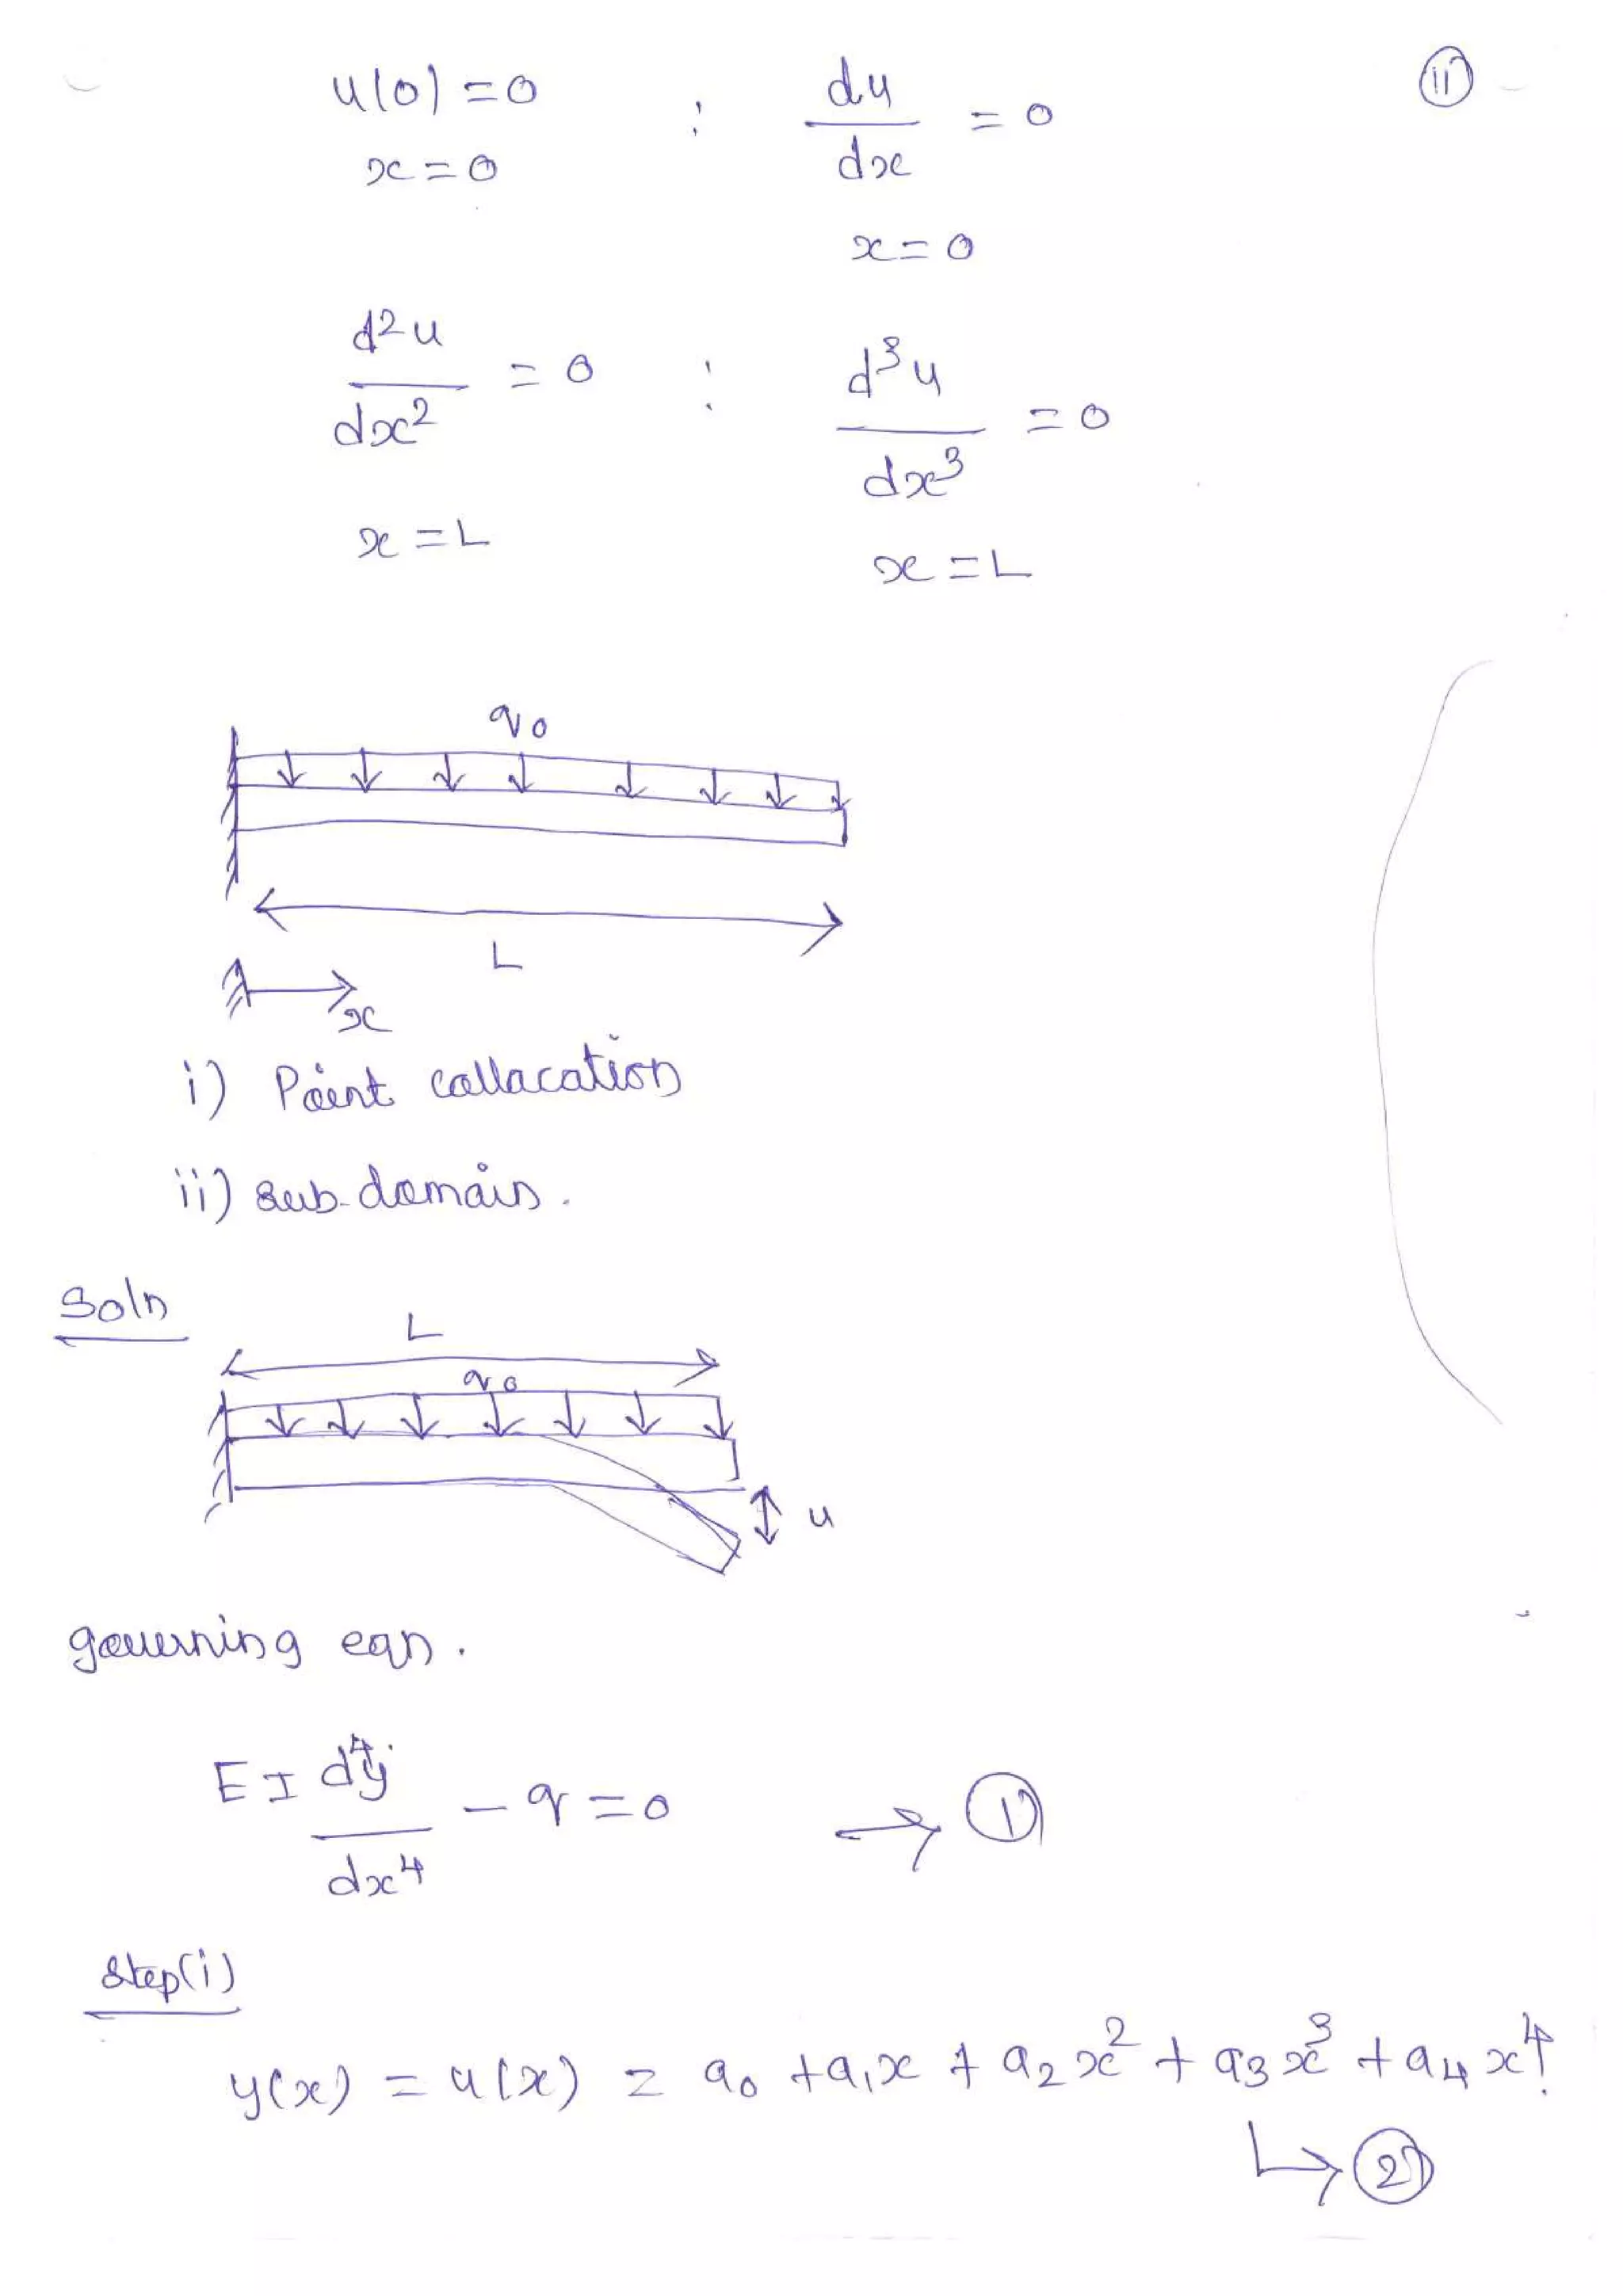 11
u(0) = 0 : du/dx = 0
x = 0
x = 0
d2u/dx2 = 0 : d3u/dx3 = 0
x = L
x = L
q0
L
x
i) Point callacation
ii) sub-domain.
Soln
L
q0
u
governing eqn.
EI d4y/dx4 - q = 0 → 1
step(i)
y(x) = u(x) = a0 + a1x + a2x2 + a3x3 + a4x4.
↳ 2